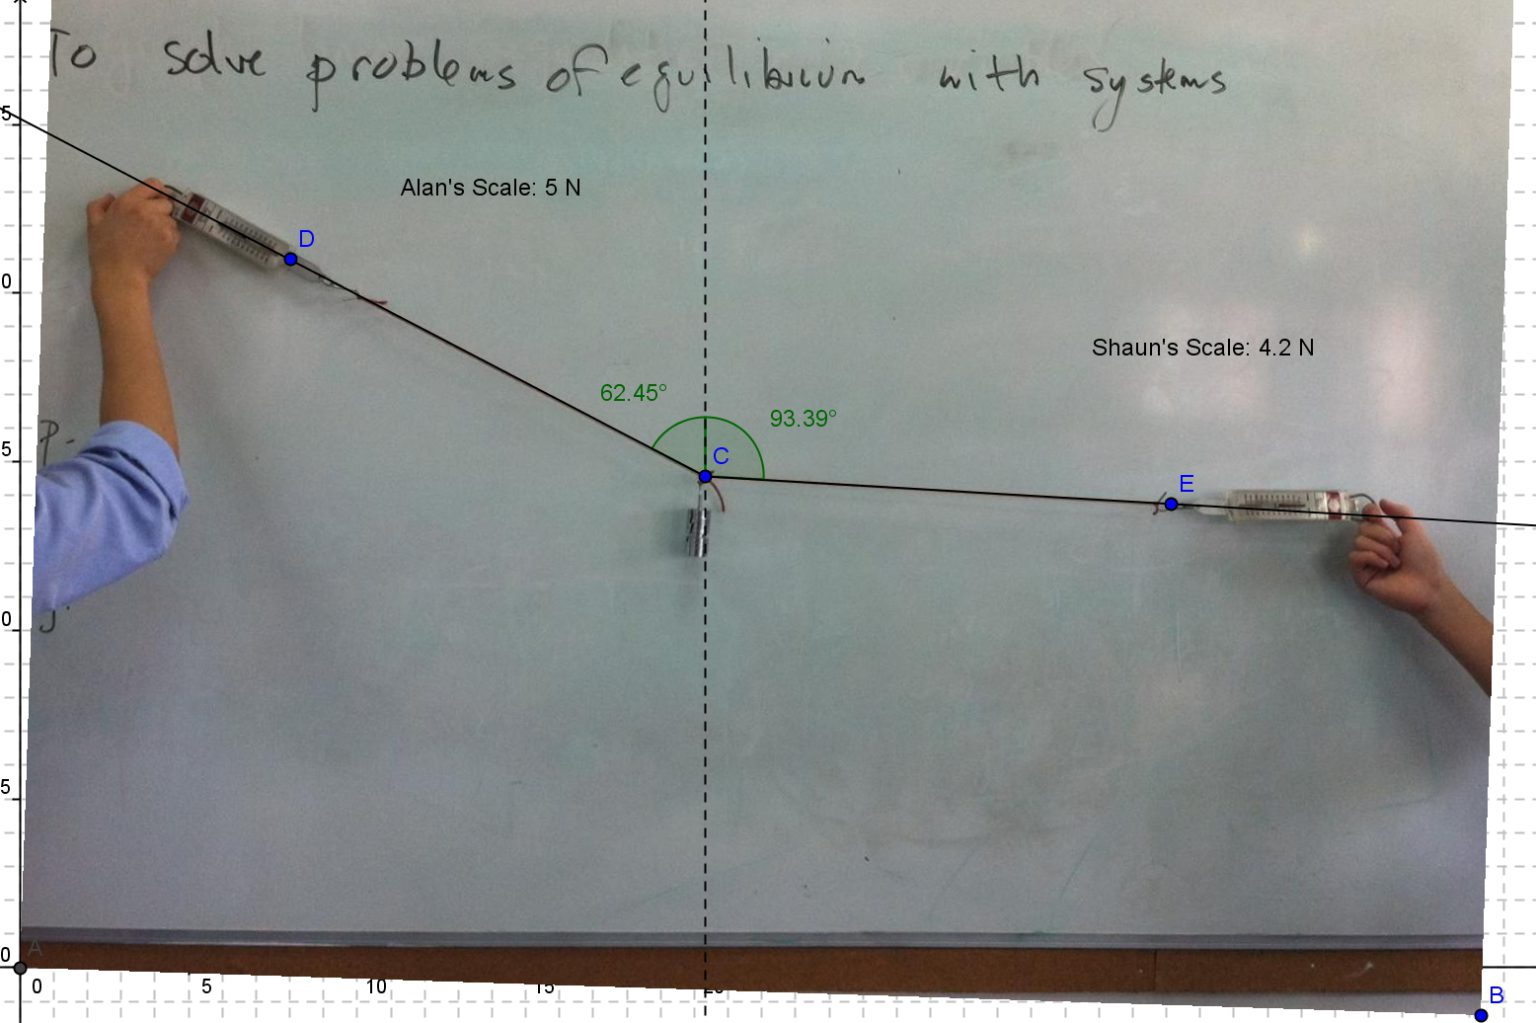 To solve problems of equilibrium with systems
Alan's Scale: 5 N
Shaun's Scale: 4.2 N
D
62.45°
93.39°
C
E
P.
5
0
5
0
5
0
A
0 5 10 15 20
B